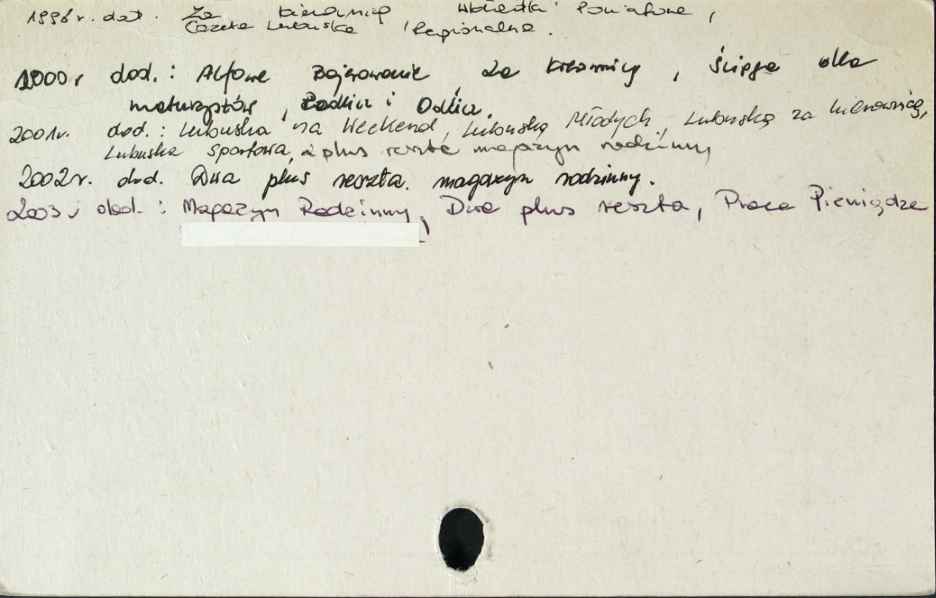 1996 r. dod. Za kierownicą Wkładka Powiatowe,
Gazeta Lubuska Regionalna.
2000 r dod.: Alfowe za kierownicą, ściąga dla
maturzystów, i
2001r. dod.: Lubuska na Weekend, Lubuska Młodych, Lubuska za kierownicą,
Lubuska Sportowa, 2 plus reszta magazyn rodzinny
2002r. dod. Dwa plus reszta. magazyn rodzinny.
2003 r dod.: Magazyn Rodzinny, Dwa plus reszta, Praca Pieniądze